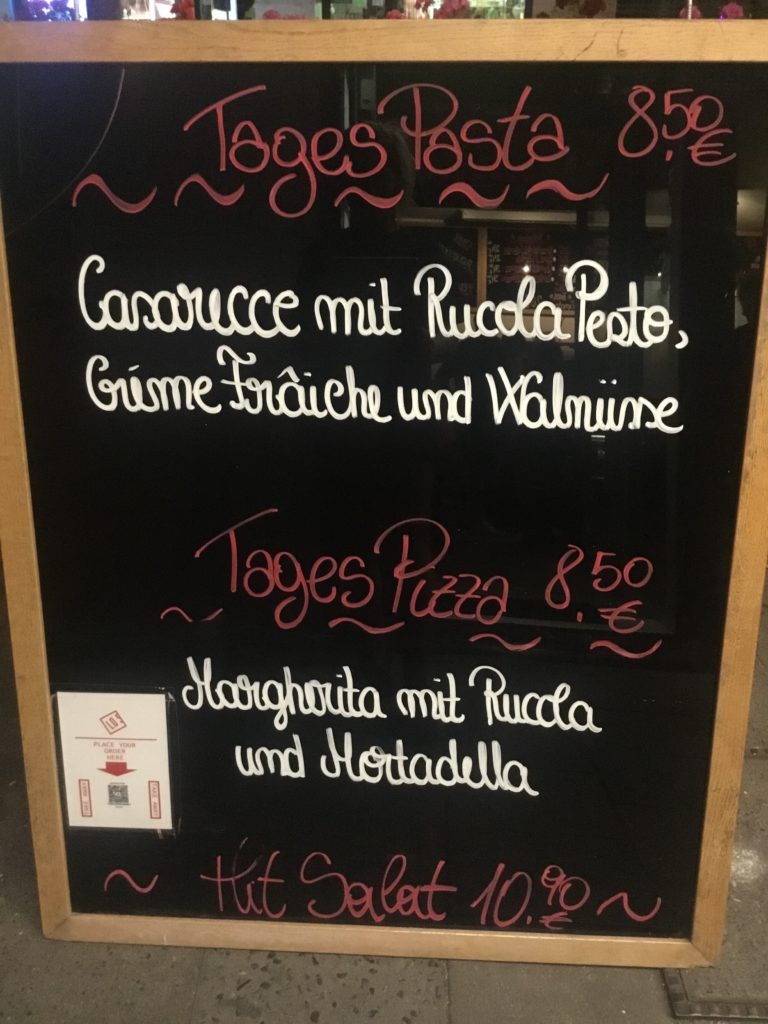 Tages Pasta 8.50 €
Casarecce mit Rucola Pesto,
Créme Frâiche und Walnüsse
Tages Pizza 8.50 €
Margherita mit Rucola
und Mortadella
PLACE YOUR
ORDER
HERE
TAKE AWAY
Hit Salat 10.90 €